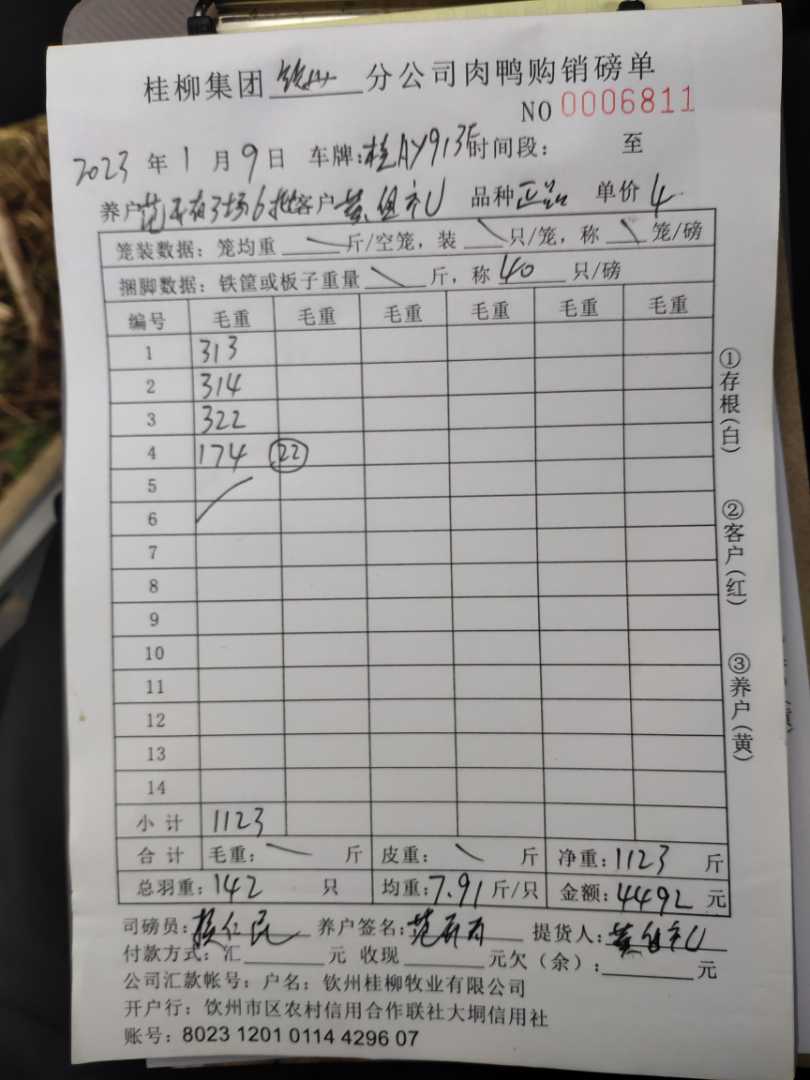 桂柳集团 钦州 分公司肉鸭购销磅单
NO 0006811
2023 年 1 月 9 日 车牌:桂AY913F 时间段: 至
养户 3场6批 客户 品种 正品 单价 4
笼装数据:笼均重 斤/空笼,装 只/笼,称 笼/磅
捆脚数据:铁筐或板子重量 斤,称 40 只/磅
编号 毛重 毛重 毛重 毛重 毛重 毛重
1 313
2 314
3 322
4 174 22
5
6
7
8
9
10
11
12
13
14
小计 1123
合计 毛重: 斤 皮重: 斤 净重:1123 斤
总羽重:142 只 均重:7.91 斤/只 金额:4492 元
司磅员: 养户签名: 提货人:
付款方式:汇 元 收现 元欠(余): 元
公司汇款帐号:户名:钦州桂柳牧业有限公司
开户行:饮州市区农村信用合作联社大垌信用社
账号:8023 1201 0114 4296 07
①存根(白)
②客户(红)
③养户(黄)